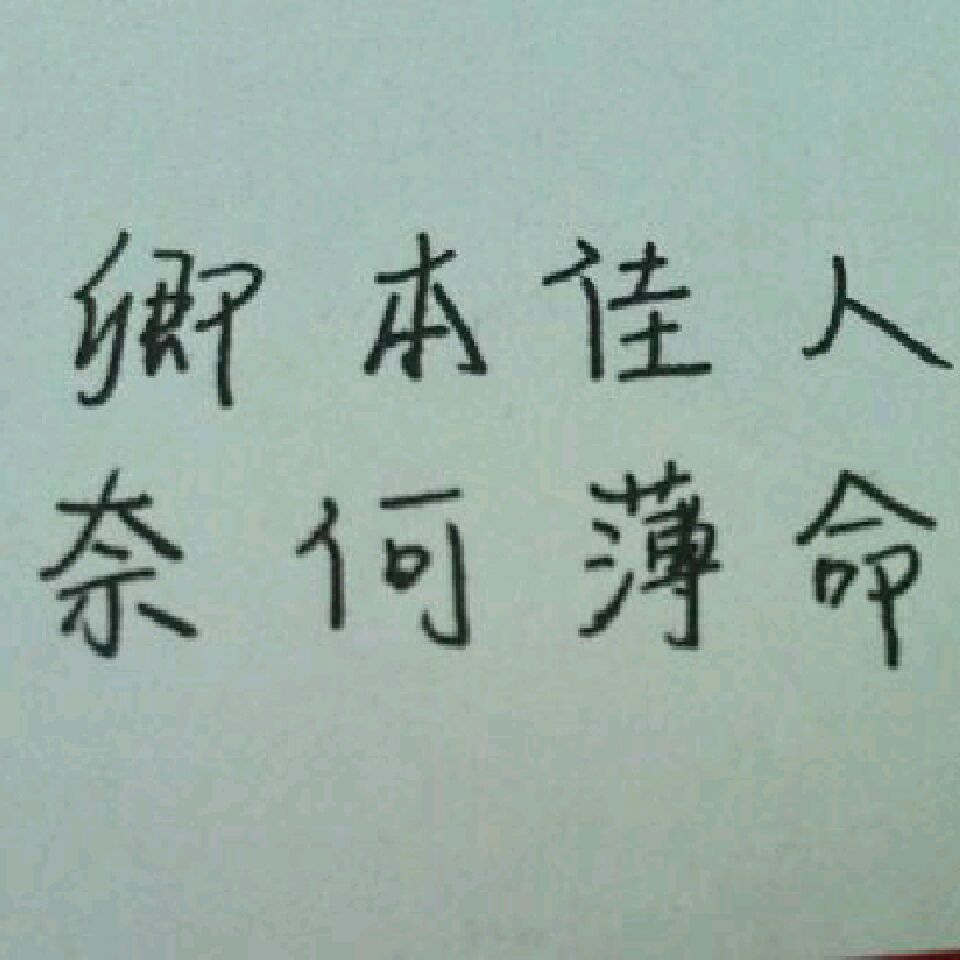 卿本佳人
奈何薄命